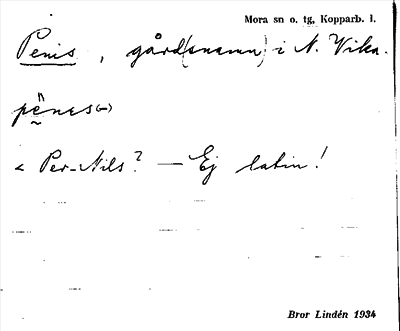 Mora sn o. tg, Kopparb. l.
Penis, gård(snamn) i N. Vika.
pënes(-)
< Per-Nils? — Ej latin!
Bror Lindén 1934